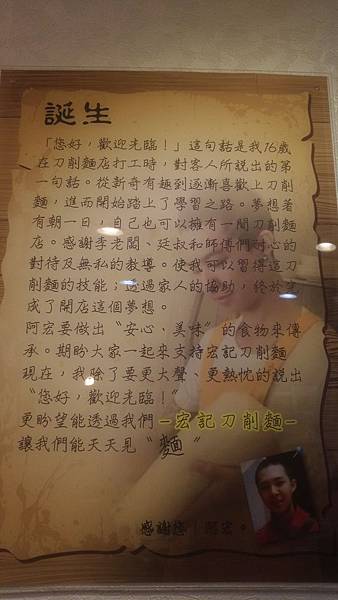 誕生
「您好，歡迎光臨！」這句話是我16歲
在刀削麵店打工時，對客人所說出的第
一句話。從新奇有趣到逐漸喜歡上刀削
麵，進而開始踏上了學習之路。夢想著
有朝一日，自己也可以擁有一間刀削麵
店。感謝李老闆、廷叔和師傅們耐心的
對待及無私的教導。使我可以習得這刀
削麵的技能；透過家人的協助，終於完
成了開店這個夢想。
阿宏要做出〝安心、美味〞的食物來傳
承。期盼大家一起來支持宏記刀削麵
現在，我除了要更大聲、更熱忱的說出
〝您好，歡迎光臨！〞
更盼望能透過我們－宏記刀削麵－
讓我們能天天見〝麵〞
感謝您！阿宏。